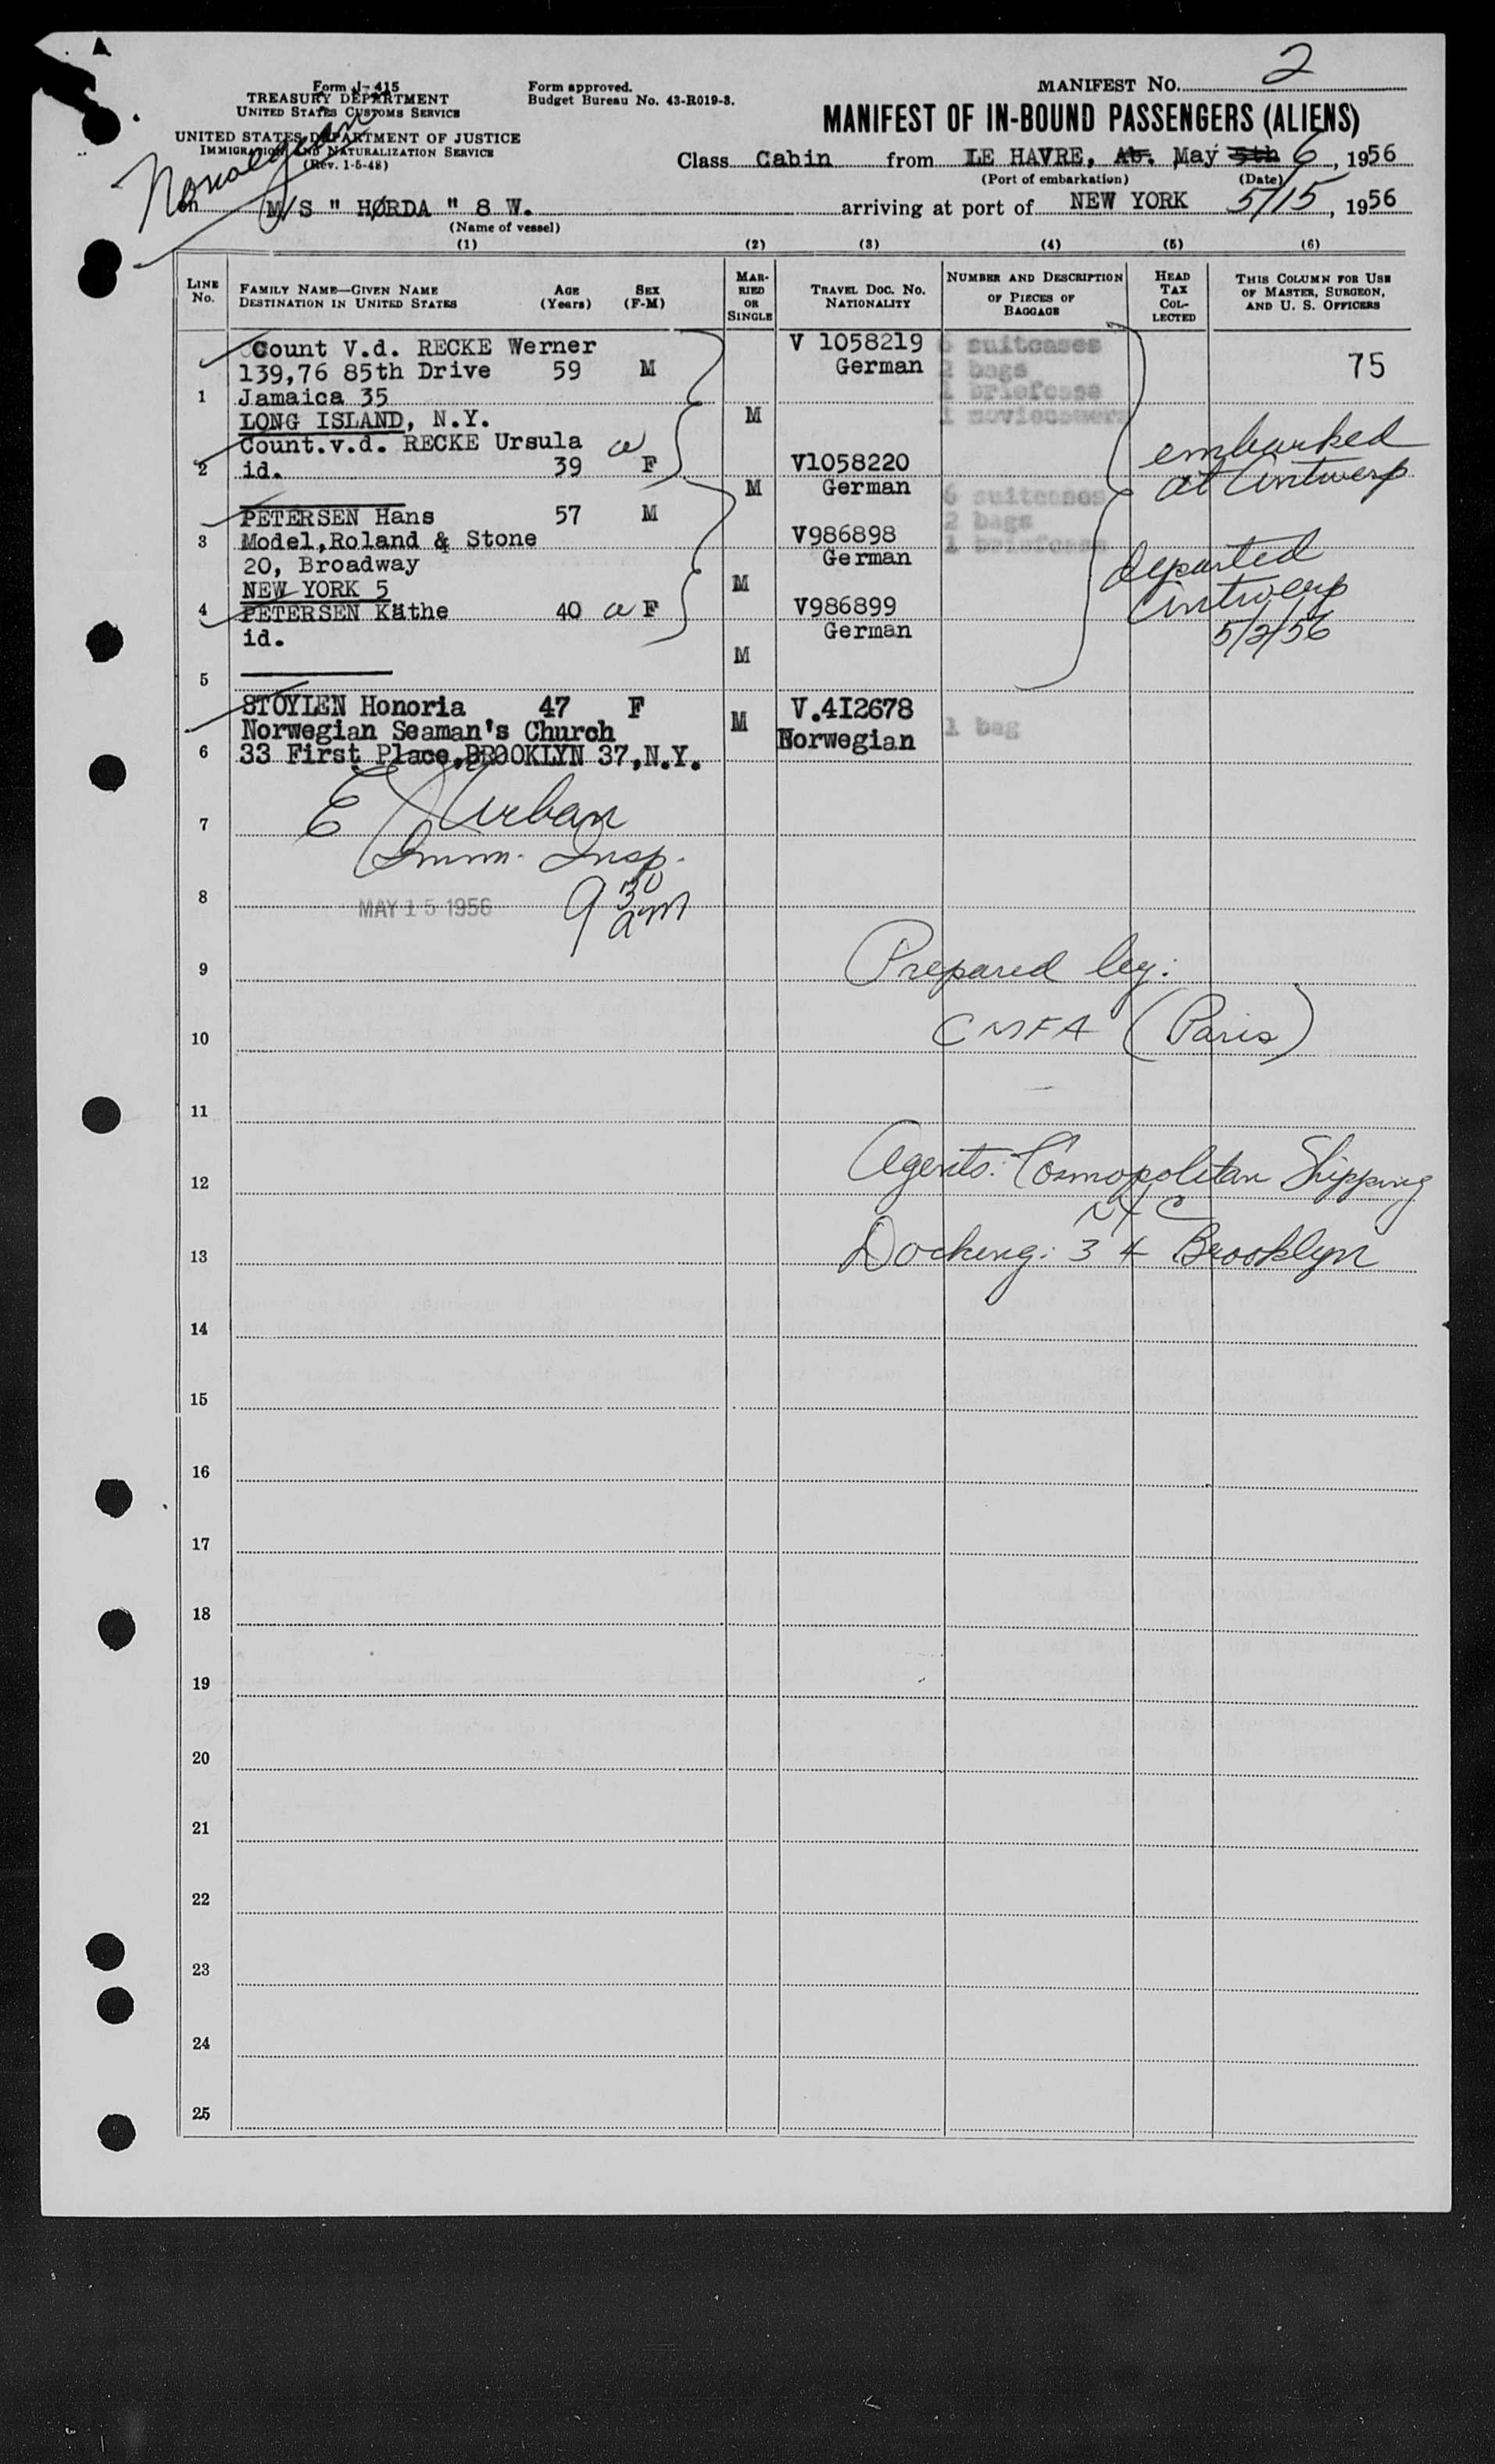 MANIFEST NO. 2
Form I-415
TREASURY DEPARTMENT
UNITED STATES CUSTOMS SERVICE
UNITED STATES DEPARTMENT OF JUSTICE
IMMIGRATION AND NATURALIZATION SERVICE
(Rev. 1-5-48)
Form approved.
Budget Bureau No. 43-R019-3.
MANIFEST OF IN-BOUND PASSENGERS (ALIENS)
Class Cabin from LE HAVRE, Ab. May 5th 6, 1956
(Port of embarkation) (Date)
Norwegian
on M/S " HØRDA " 8 W. arriving at port of NEW YORK 5/15, 1956
(Name of vessel)
(1) (2) (3) (4) (5) (6)
LINE No.
FAMILY NAME—GIVEN NAME
DESTINATION IN UNITED STATES
AGE (Years)
SEX (F-M)
MARRIED OR SINGLE
TRAVEL DOC. NO.
NATIONALITY
NUMBER AND DESCRIPTION OF PIECES OF BAGGAGE
HEAD TAX COLLECTED
THIS COLUMN FOR USE OF MASTER, SURGEON, AND U. S. OFFICERS
Count V.d. RECKE Werner V 1058219 6 suitcases
139,76 85th Drive 59 M German 2 bags 75
1 Jamaica 35 1 briefcase
LONG ISLAND, N.Y. M
Count.v.d. RECKE Ursula
2 id. 39 F V1058220
M German 6 suitcases
embarked
at Antwerp
PETERSEN Hans 57 M 2 bags
3 Model,Roland & Stone V986898 1 briefcase
20, Broadway German
NEW YORK 5 M
4 PETERSEN Käthe 40 F V986899
id. German
M
departed
Antwerp
5/2/56
5
STOYLEN Honoria 47 F M V.4I2678 1 bag
Norwegian Seaman's Church Norwegian
6 33 First Place,BROOKLYN 37,N.Y.
7 E Urban
Imm. Insp.
8 MAY 15 1956 9 30 am
9 Prepared by:
10 CMFA (Paris)
11
12 Agents: Cosmopolitan Shipping
NYC
13 Docking: 34 Brooklyn
14
15
16
17
18
19
20
21
22
23
24
25